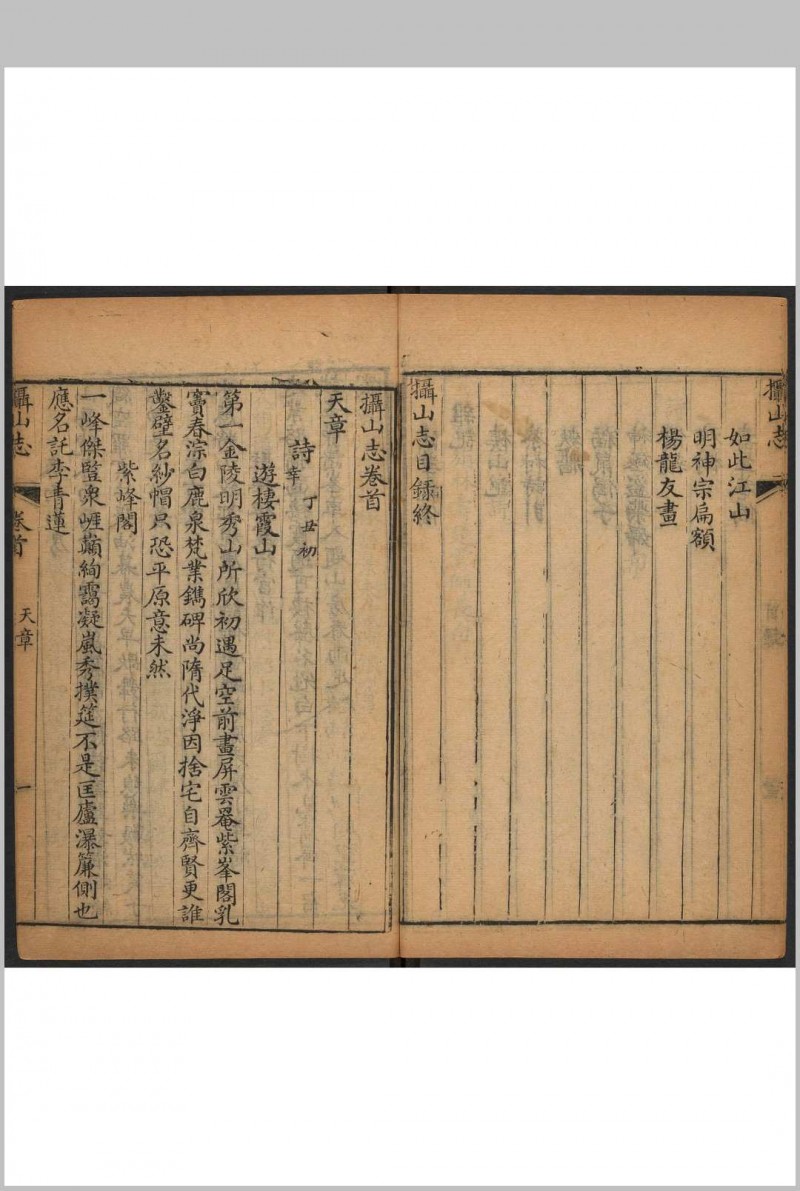 攝山志
如此江山
明神宗扁額
楊龍友畫
攝山志目錄終
攝山志卷首
天章
詩 丁丑初幸
遊棲霞山
第一金陵明秀山所欣初遇足空前畫屏雲罨紫峯閣乳
竇春淙白鹿泉梵業鐫碑尚隋代淨因捨宅自齊賢更誰
鑿壁名紗帽只恐平原意未然
紫峰閣
一峰傑豎衆崕巔絢靄凝嵐秀撲筵不是匡廬瀑簾側也
應名託李青蓮
攝山志
卷首
天章
一